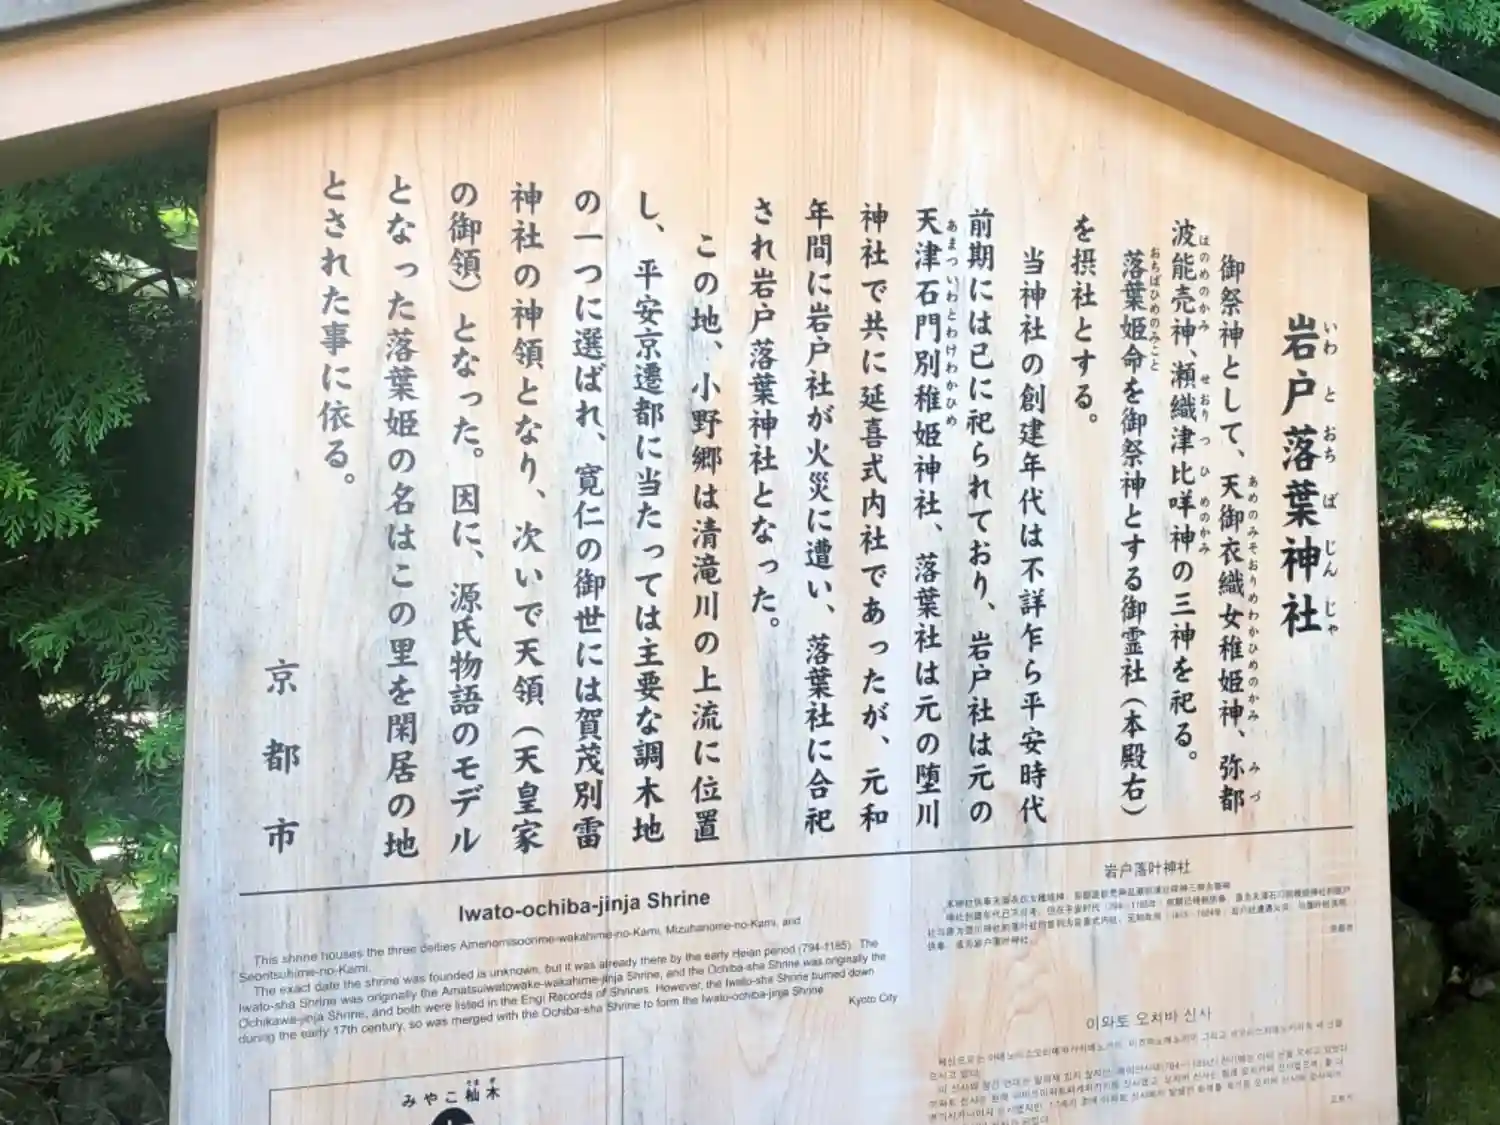 岩戸落葉神社
いわ と おち ば じん じゃ
御祭神として、天御衣織女稚姫神、弥都
あめのみそおりめわかひめのかみ みづ
波能売神、瀬織津比咩神の三神を祀る。
はのめのかみ せおり つ ひ めのかみ
落葉姫命を御祭神とする御霊社(本殿右)
おちばひめのみこと
を摂社とする。
当神社の創建年代は不詳乍ら平安時代
前期には已に祀られており、岩戸社は元の
天津石門別稚姫神社、落葉社は元の堕川
あまつ いわとわけわかひめ
神社で共に延喜式内社であったが、元和
年間に岩戸社が火災に遭い、落葉社に合祀
され岩戸落葉神社となった。
この地、小野郷は清滝川の上流に位置
し、平安京遷都に当たっては主要な調木地
の一つに選ばれ、寛仁の御世には賀茂別雷
神社の神領となり、次いで天領(天皇家
の御領)となった。因に、源氏物語のモデル
となった落葉姫の名はこの里を閑居の地
とされた事に依る。
京都市
Iwato-ochiba-jinja Shrine
This shrine houses the three deities Amenomisoorime-wakahime-no-Kami, Mizuhanome-no-Kami, and
Seoritsuhime-no-Kami.
The exact date the shrine was founded is unknown, but it was already there by the early Heian period (794-1185). The
Iwato-sha Shrine was originally the Amatsuiwatowake-wakahime-jinja Shrine, and the Ochiba-sha Shrine was originally the
Ochikawa-jinja Shrine, and both were listed in the Engi Records of Shrines. However, the Iwato-sha Shrine burned down
during the early 17th century, so was merged with the Ochiba-sha Shrine to form the Iwato-ochiba-jinja Shrine
Kyoto City
岩户落叶神社
이와토 오치바 신사
みやこ杣木
そま ぎ